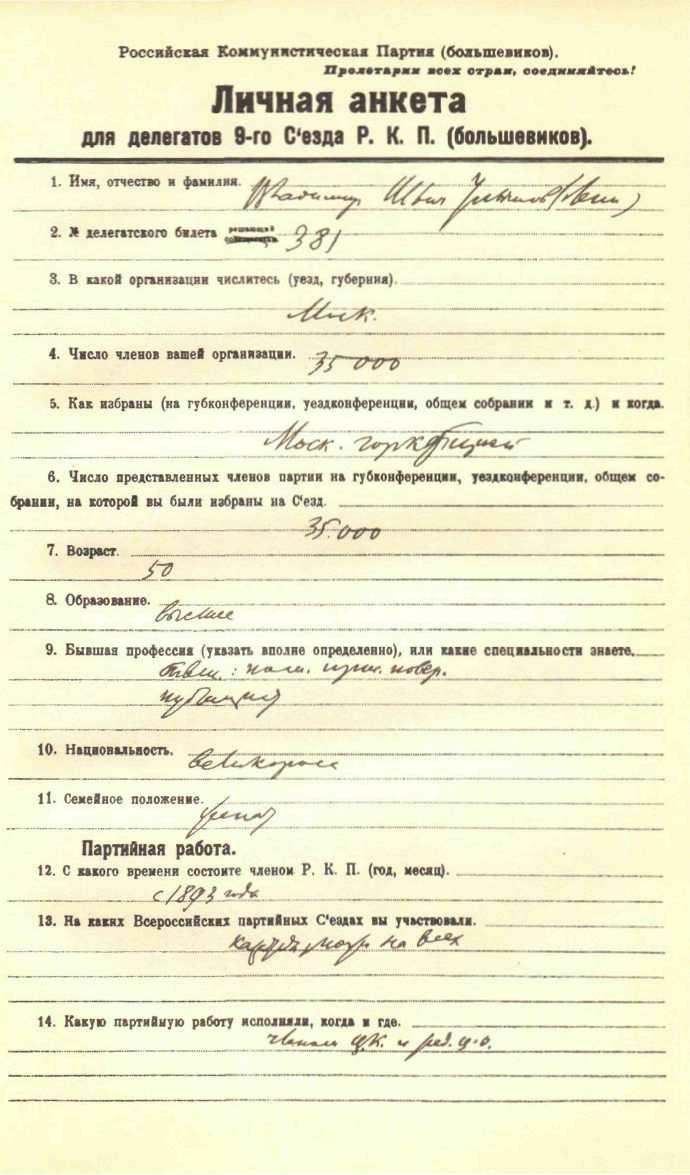 Российская Коммунистическая Партия (большевиков).
Пролетарии всех стран, соединяйтесь!
Личная анкета
для делегатов 9-го С‘езда Р. К. П. (большевиков).
1. Имя, отчество и фамилия. Владимир Ильич Ульянов (Ленин)
2. № делегатского билета решающий 381
3. В какой организации числитесь (уезд, губерния).
Моск.
4. Число членов вашей организации. 35 000
5. Как избраны (на губконференции, уездконференции, общем собрании и т. д.) и когда.
Моск.
6. Число представленных членов партии на губконференции, уездконференции, общем со-
брании, на которой вы были избраны на С‘езд.
35.000
7. Возраст.
50
8. Образование.
высшее
9. Бывшая профессия (указать вполне определенно), или какие специальности знаете.
пом. прис. повер.
публицист
10. Национальность.
великоросс
11. Семейное положение.
женат
Партийная работа.
12. С какого времени состоите членом Р. К. П. (год, месяц).
с 1893 года
13. На каких Всероссийских партийных С‘ездах вы участвовали.
на всех
14. Какую партийную работу исполняли, когда и где.
членом Ц.К. и ред. ц.о.